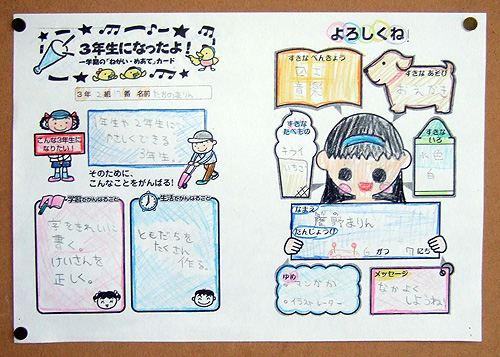 3年生になったよ!
一学期の「ねがい・めあて」カード
3年 2組 番 名前
こんな3年生に
なりたい!
1年生や2年生に
やさしくできる
3年生
そのために、
こんなことをがんばる!
学習でがんばること
字をきれいに
書く。
けいさんを
正しく。
生活でがんばること
ともだちを
たくさん
作る。
よろしくね!
すきな べんきょう
図工
音楽
すきな あそび
おえかき
すきな
たべもの
キウイ
いちご
すきな
いろ
水色
白
なまえ
鷹野まりん
たんじょうび
6 がつ 7 にち
ゆめ
マンガか
イラストレーター
メッセージ
なかよく
しようね!